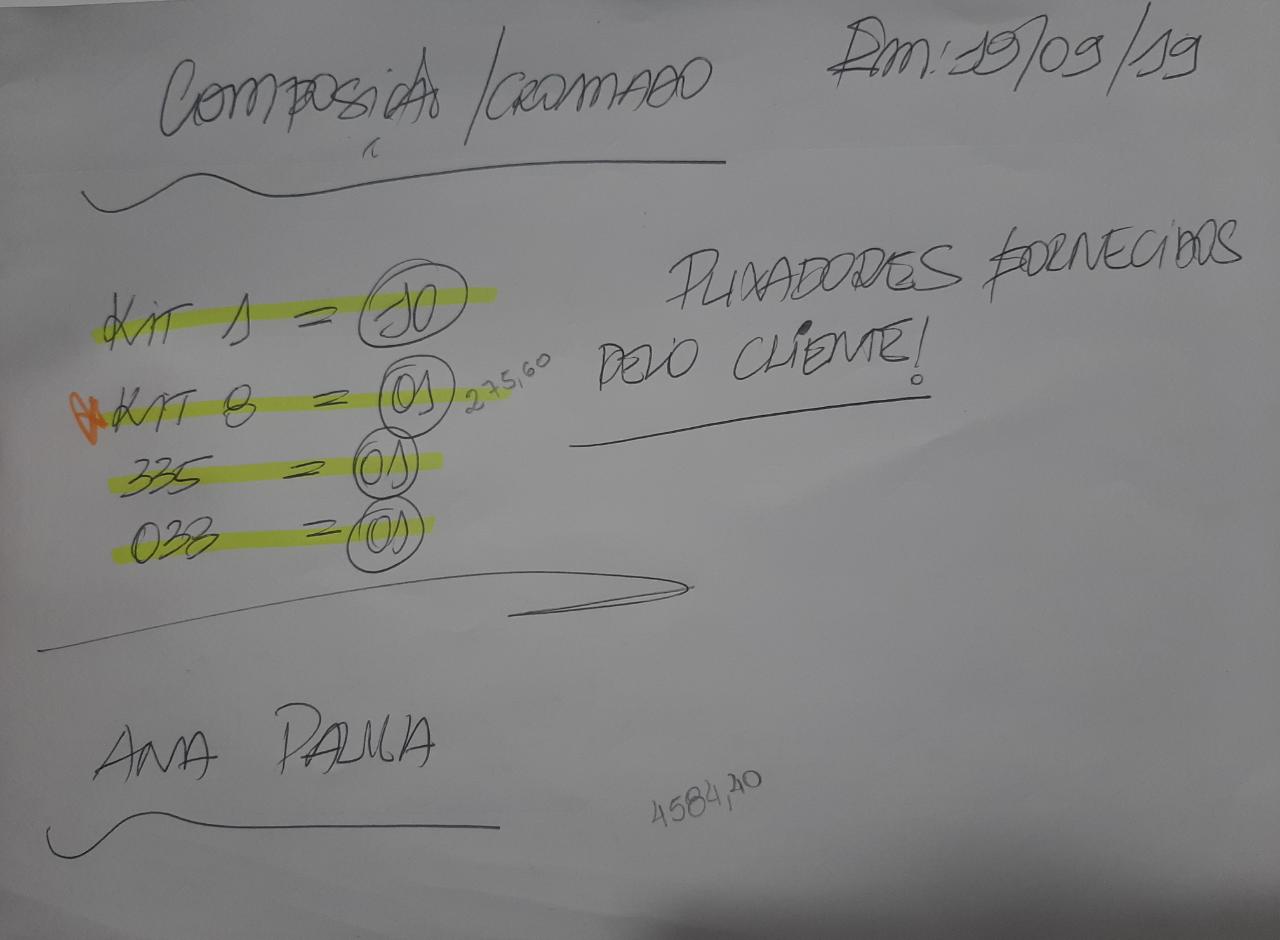 COMPOSIÇÃO/CROMADO
Em: 19/09/19
KIT 1 = 10
KIT 8 = 01 275,60
335 = 01
038 = 01
PUXADORES FORNECIDOS
PELO CLIENTE!
ANA PAULA
4584,40